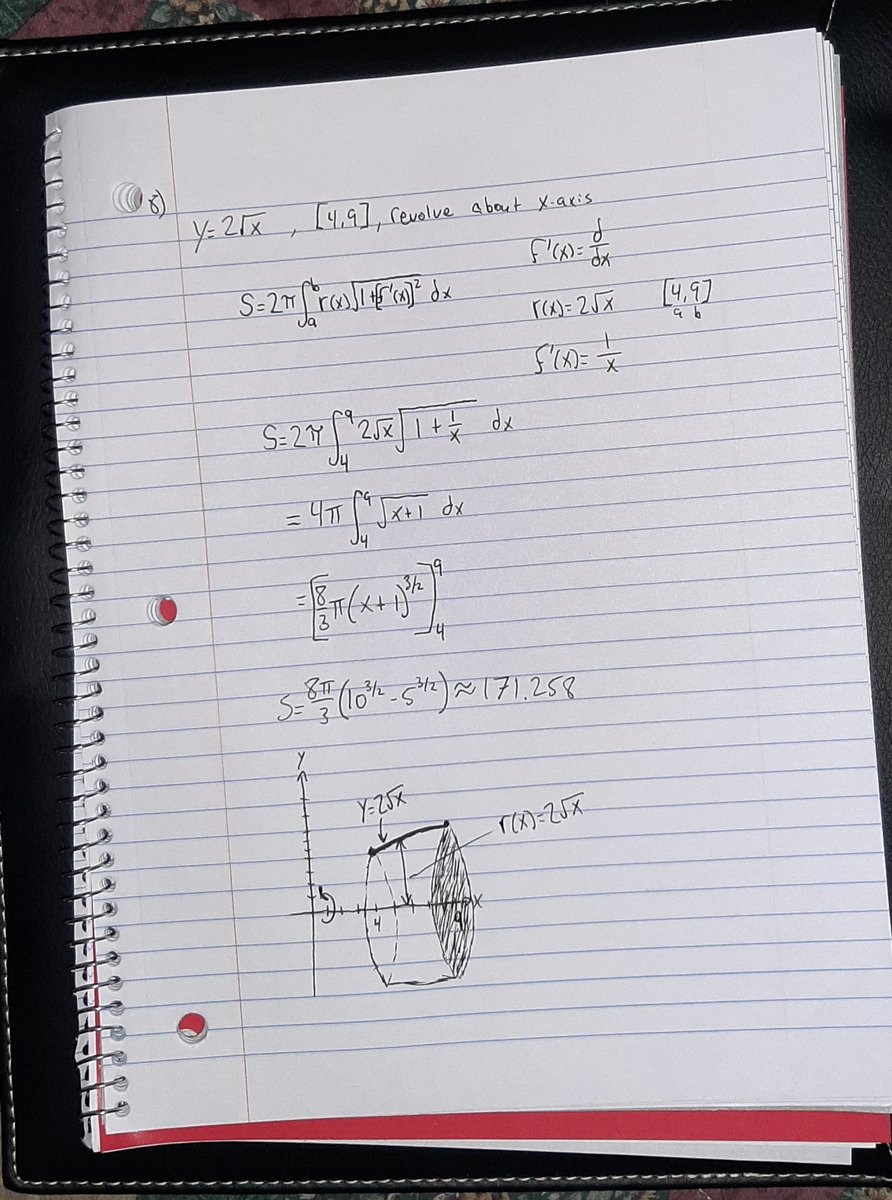 8)
y=2√x , [4,9], revolve about x-axis
f'(x)= d/dx
S=2π∫_a^b r(x)√(1+[f'(x)]²) dx
r(x)=2√x [4,9]
a b
f'(x)= 1/x
S=2π∫_4^9 2√x √(1+1/x) dx
=4π∫_4^9 √(x+1) dx
=[8/3 π(x+1)^(3/2)]_4^9
S=8π/3 (10^(3/2) - 5^(3/2)) ≈ 171.258
Y
Y=2√x
r(x)=2√x
X
4
9